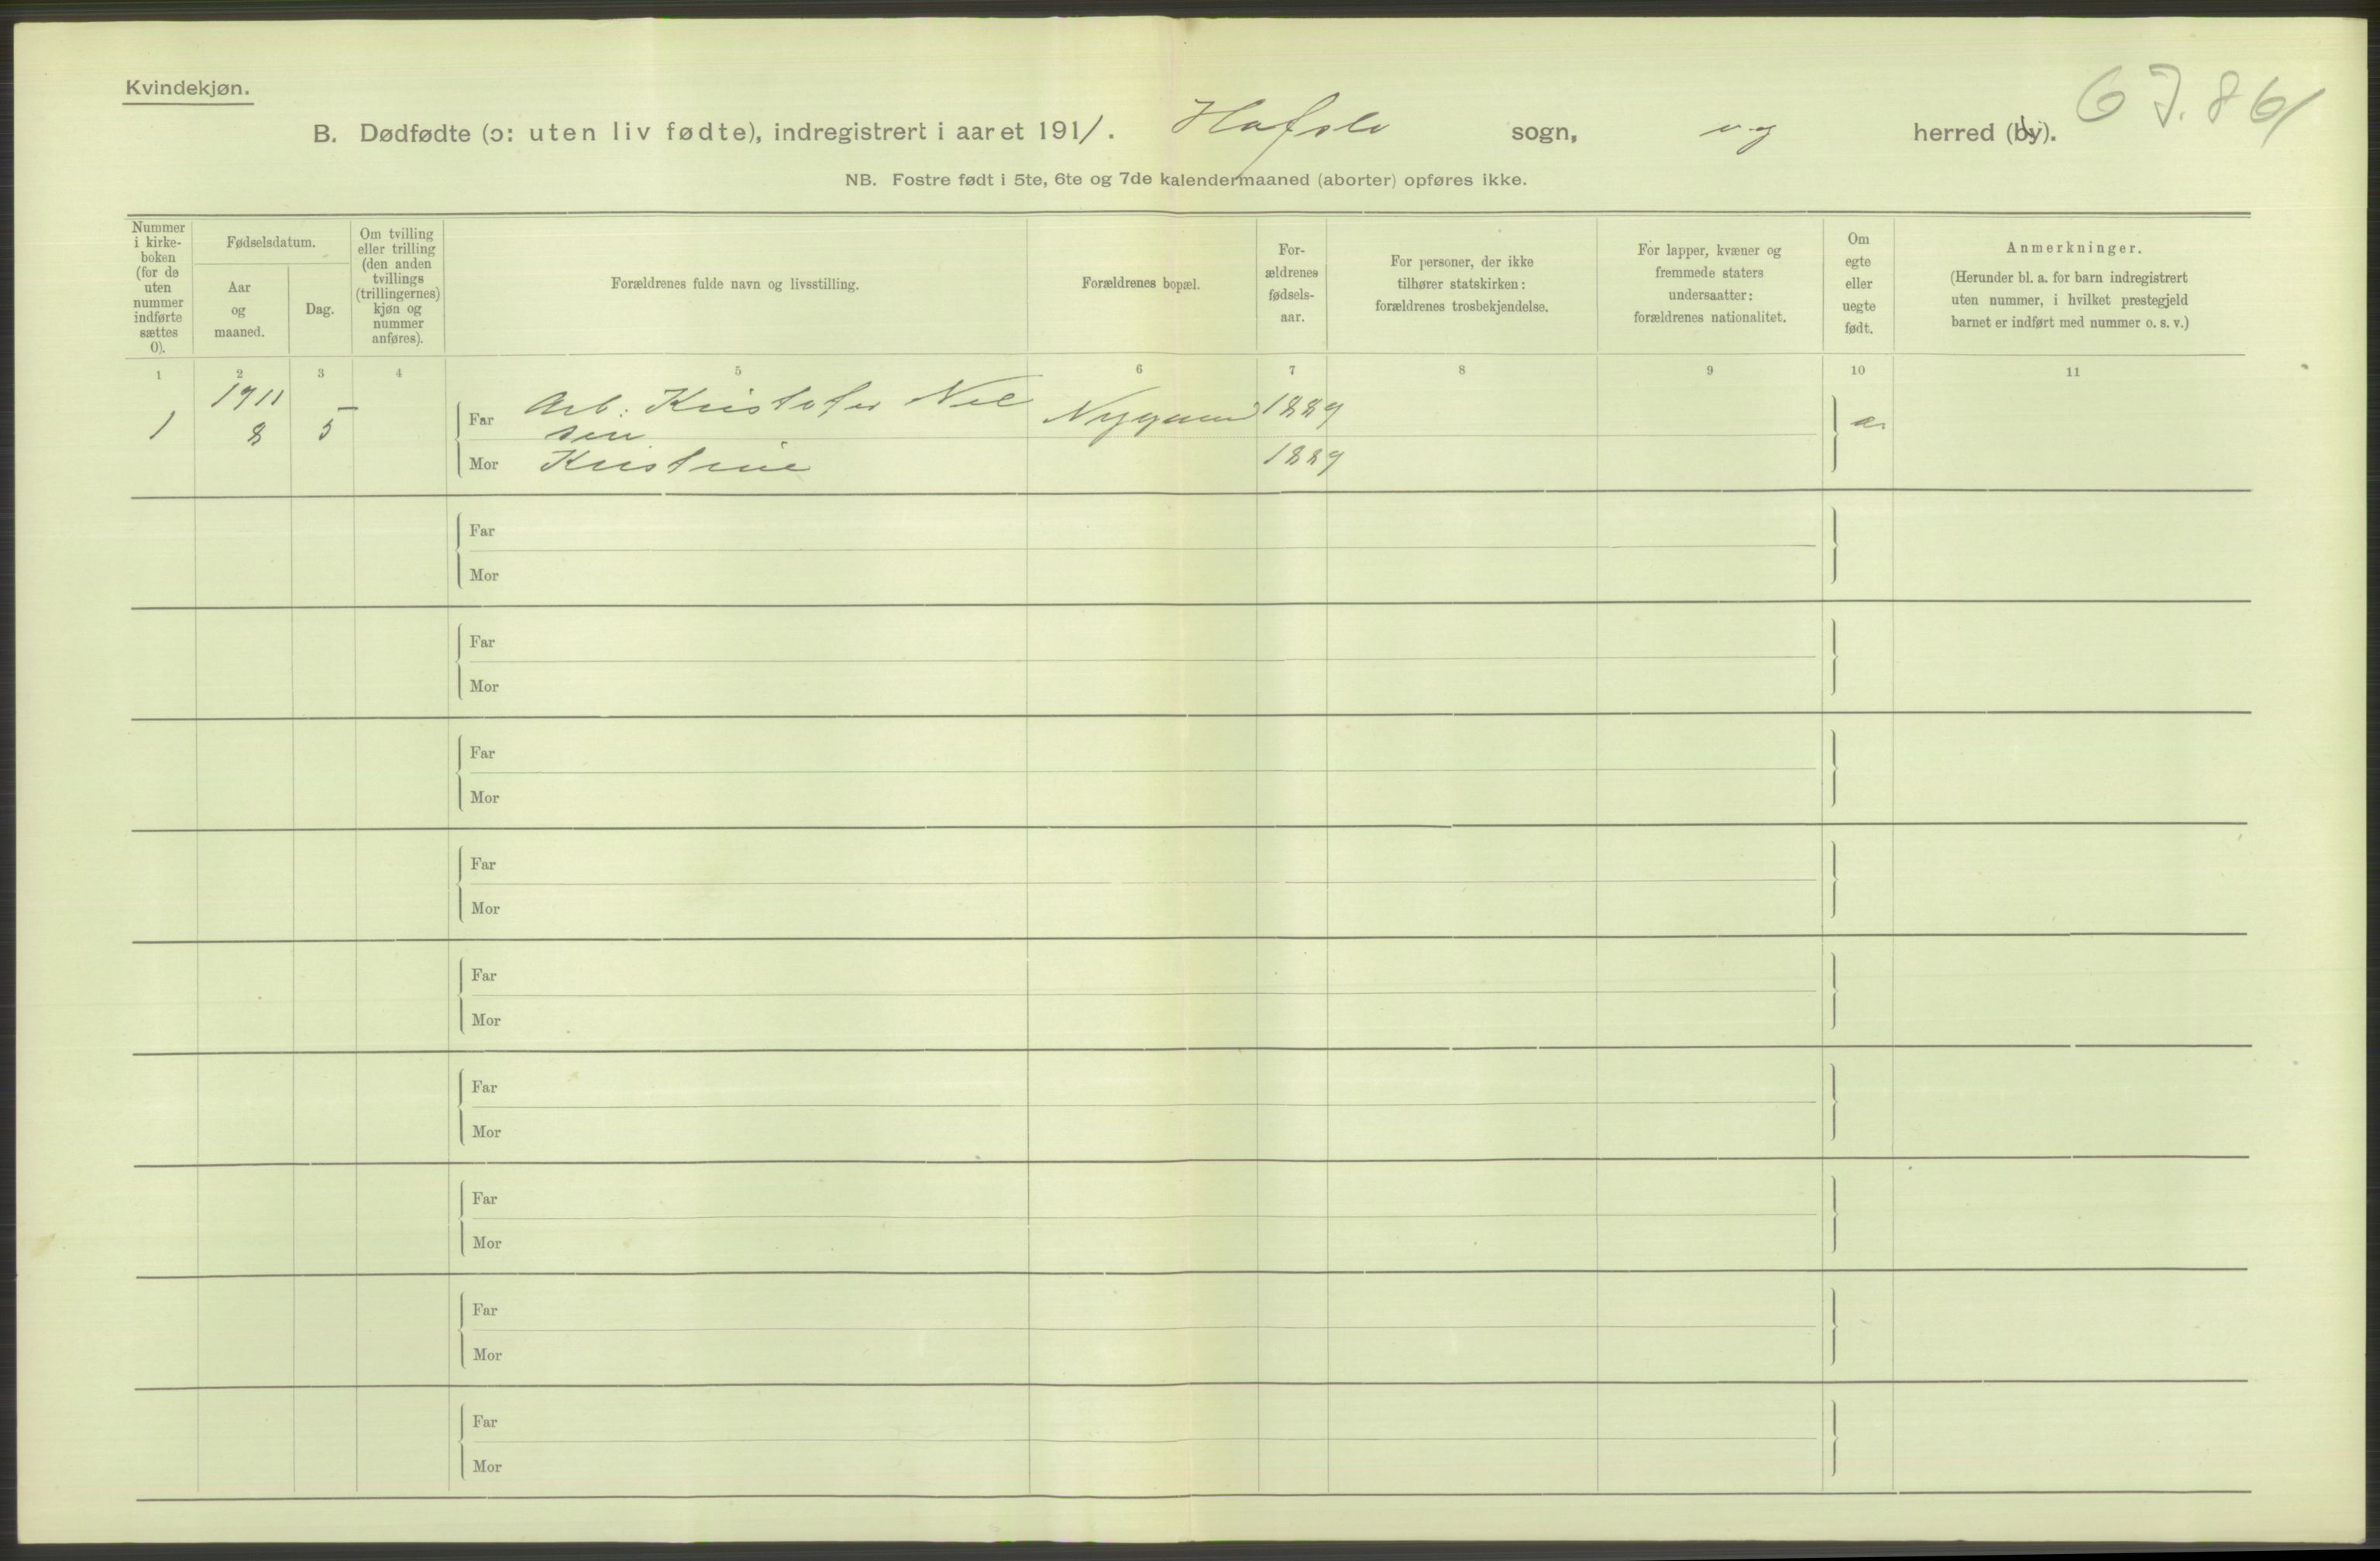 Kvindekjøn.
6 J. 86/
B. Dødfødte (ɔ: uten liv fødte), indregistrert i aaret 1911. Hafslo sogn, og herred (by).
NB. Fostre født i 5te, 6te og 7de kalendermaaned (aborter) opføres ikke.
Nummer
i kirke-
boken
(for de
uten
nummer
indførte
sættes
0).
Fødselsdatum.
Aar
og
maaned.
Dag.
Om tvilling
eller trilling
(den anden
tvillings
(trillingernes)
kjøn og
nummer
anføres).
Forældrenes fulde navn og livsstilling.
Forældrenes bopæl.
For-
ældrenes
fødsels-
aar.
For personer, der ikke
tilhører statskirken:
forældrenes trosbekjendelse.
For lapper, kvæner og
fremmede staters
undersaatter:
forældrenes nationalitet.
Om
egte
eller
uegte
født.
Anmerkninger.
(Herunder bl. a. for barn indregistrert
uten nummer, i hvilket prestegjeld
barnet er indført med nummer o. s. v.)
1 2 3 4 5 6 7 8 9 10 11
1911
1 8 5 Far Arb. Kristofer Niel 1889
sen
Mor Kristine 1889
Far
Mor
Far
Mor
Far
Mor
Far
Mor
Far
Mor
Far
Mor
Far
Mor
Far
Mor
Far
Mor